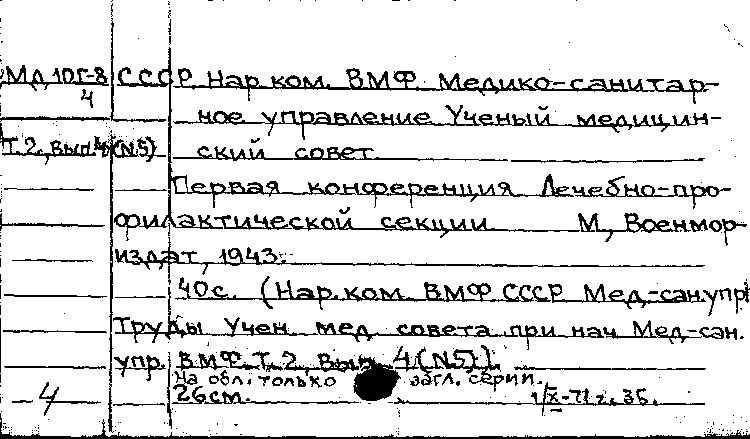 Мд 10Г-8 СССР. Нар.ком. ВМФ. Медико-санитар-
4
ное управление Ученый медицин-
Т. 2., вып. 4 (N5) ский совет.
Первая конференция Лечебно-про-
филактической секции М., Военмор-
издат, 1943.
40с. (Нар.ком. ВМФ СССР Мед.-сан.упр.
Труды Учен. мед. совета при нач. Мед.-сан.
упр. ВМФ. Т. 2, Вып. 4 (N5)).
На обл.: только загл. серии.
4 26см. 1/X-71г. 35.